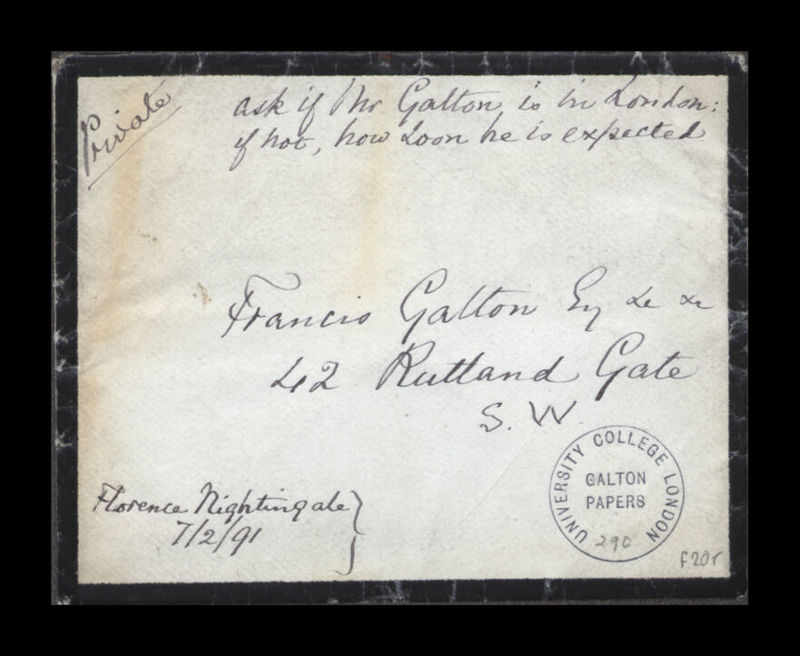 Private
ask if Mr Galton is in London:
if not, how soon he is expected
Francis Galton Esq &c &c
42 Rutland Gate
S.W
Florence Nightingale
7/2/91
UNIVERSITY COLLEGE LONDON
GALTON
PAPERS
290
F20r